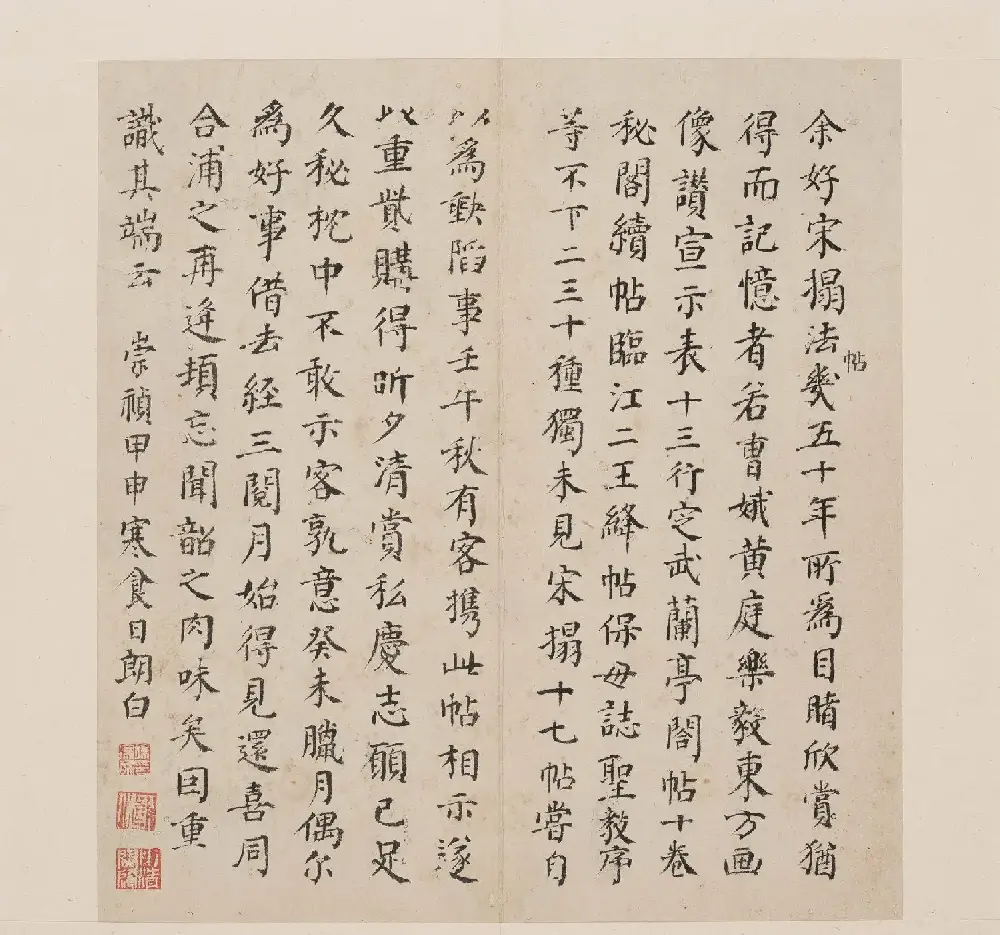 余好宋搨法帖幾五十年所爲目睹欣賞猶
得而記憶者若曹娥黄庭樂毅東方画
像讃宣示表十三行定武蘭亭閣帖十卷
秘閣續帖臨江二王絳帖保母誌聖教序
等不下二三十種獨未見宋搨十七帖嘗自
以爲缺陷事壬午秋有客携此帖相示遂
以重貲購得昕夕清賞私慶志願已足
久秘枕中不敢示客孰意癸未臘月偶尔
爲好事借去経三閱月始得見還喜同
合浦之再逢頓忘聞韶之肉味矣因重
識其端云 崇禎甲申寒食日朗白